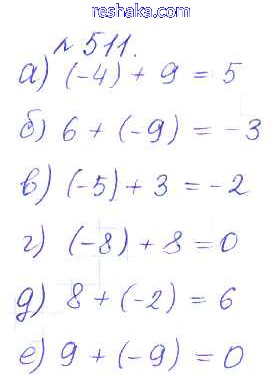 reshaka.com
№ 511.
а) (-4) + 9 = 5
б) 6 + (-9) = -3
в) (-5) + 3 = -2
г) (-8) + 8 = 0
д) 8 + (-2) = 6
е) 9 + (-9) = 0